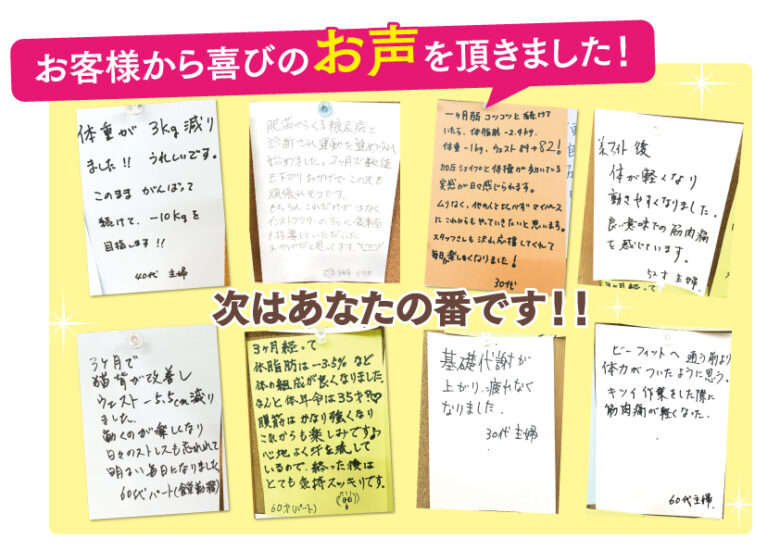 お客様から喜びのお声を頂きました！
体重が 3kg 減り
ました!! うれしいです。
このまま がんばって
続けて、－10kgを
目指します!!
40代 主婦
肥満からくる糖尿病と
診断され運動を進められ
始めました。2ヶ月で数値
も下がり おかげでこの先も
頑張れそうです。
もちろん これだけではなく
インストラクターの方に食事面
も指導していただいた
おかげだと思ってます。
一ヶ月弱 コツコツと続けて
いたら、体脂肪 －2.4kg、
体重 －1kg、ウエスト 89→82!
加圧シェイプと体操が効いている
実感が日々感じられます。
ムリなく、他の人と比べずマイペース
にこれからもやっていきたいと思います。
スタッフさんも 沢山応援してくれて
毎日楽しくなりました!
30代
後
体が軽くなり
動きやすくなりました。
良い意味での筋肉痛
を感じています。
52才 主婦
次はあなたの番です!!
3ヶ月で
猫背が改善し
ウエスト －5.5cm減り
ました。
動くのが楽しくなり
日々のストレスも忘れれて
明るい毎日になりました
60代パート
3ヶ月経って
体脂肪は－3.5% など
体の組成が良くなりました。
なんと体年令は35才?!♡
腹筋は かなり強くなり
これからも楽しみです♪
心地よく汗を流して
いるので、終った後は
とても気持スッキリです。
60才(パート)
基礎代謝が
上がり、疲れなく
なりました.
30代 主婦
ビーフィットへ 通う前より
体力がついたように思う。
キツイ 作業をした際に
筋肉痛が軽くなった.
60代主婦.